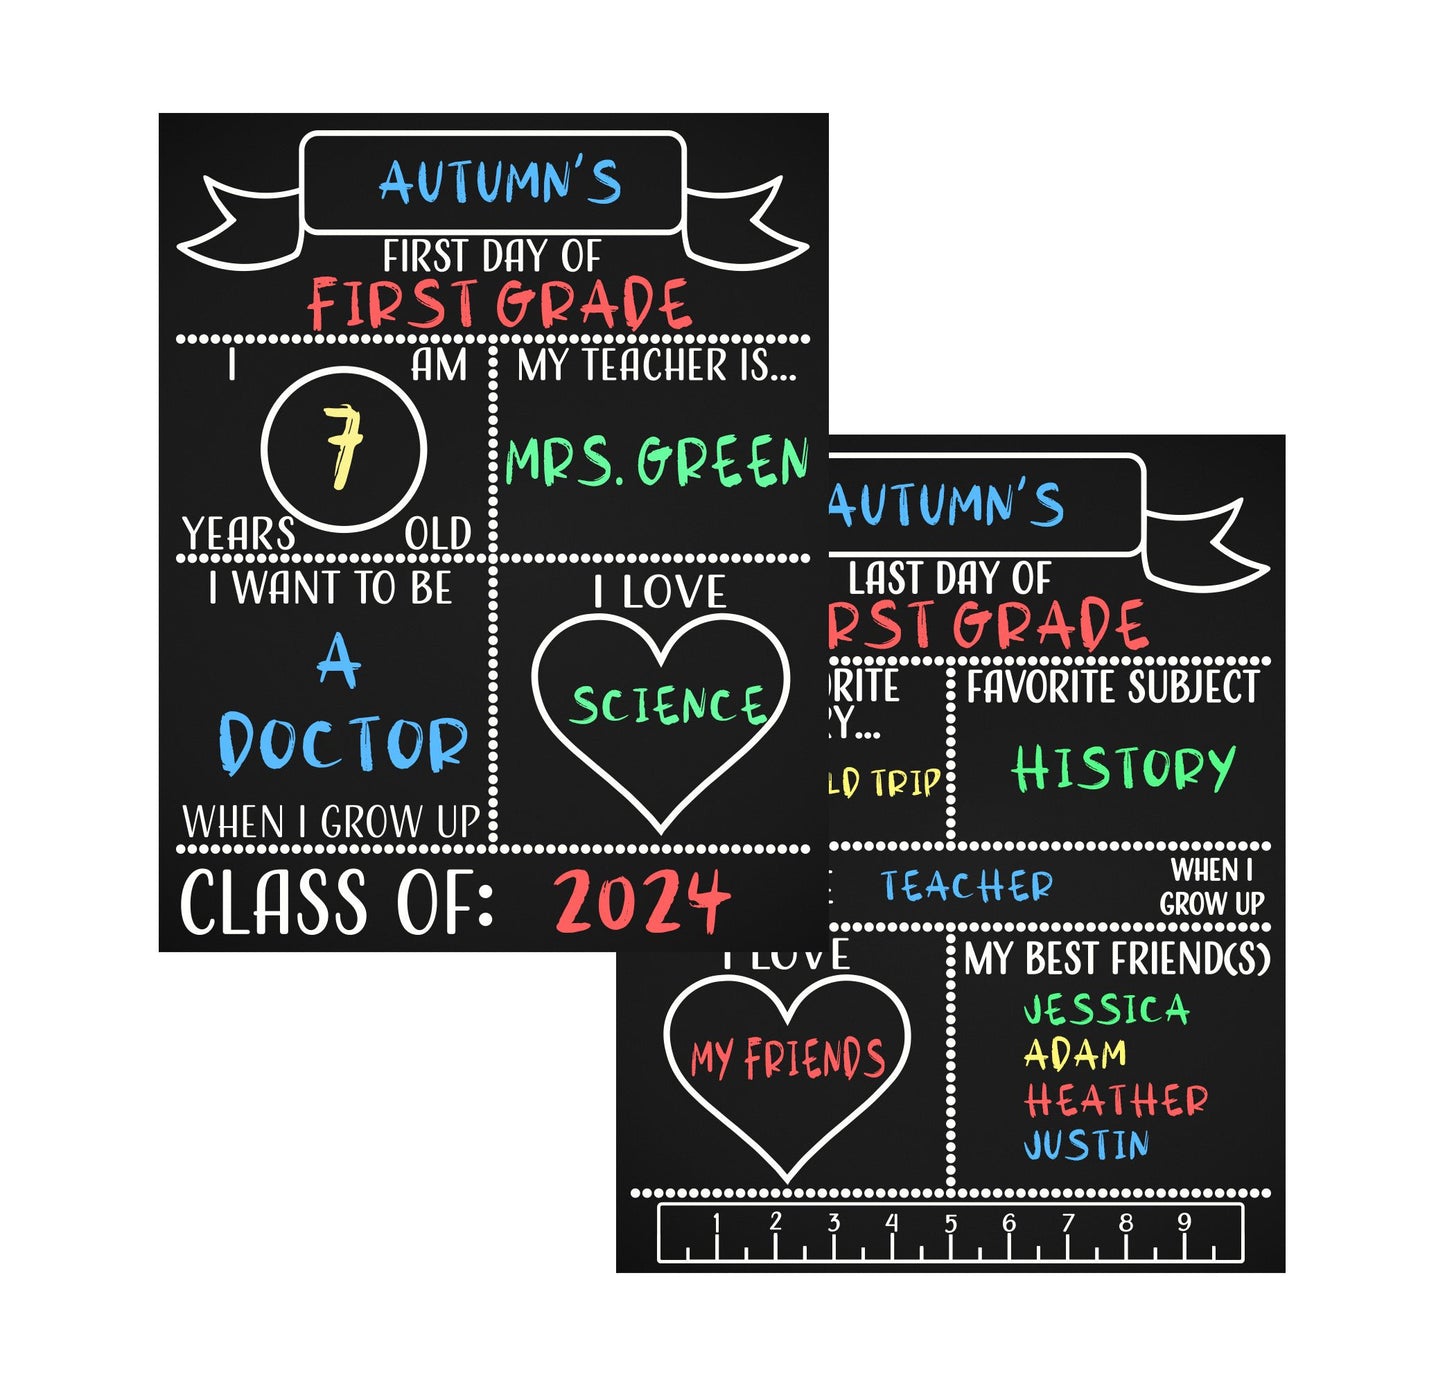 AUTUMN'S
FIRST DAY OF
FIRST GRADE
I AM
7
YEARS OLD
MY TEACHER IS...
MRS. GREEN
I WANT TO BE
A
DOCTOR
WHEN I GROW UP
I LOVE
SCIENCE
CLASS OF: 2024
AUTUMN'S
LAST DAY OF
RST GRADE
RITE
Y...
LD TRIP
FAVORITE SUBJECT
HISTORY
TEACHER
WHEN I
GROW UP
I LOVE
MY FRIENDS
MY BEST FRIEND(S)
JESSICA
ADAM
HEATHER
JUSTIN
1 2 3 4 5 6 7 8 9